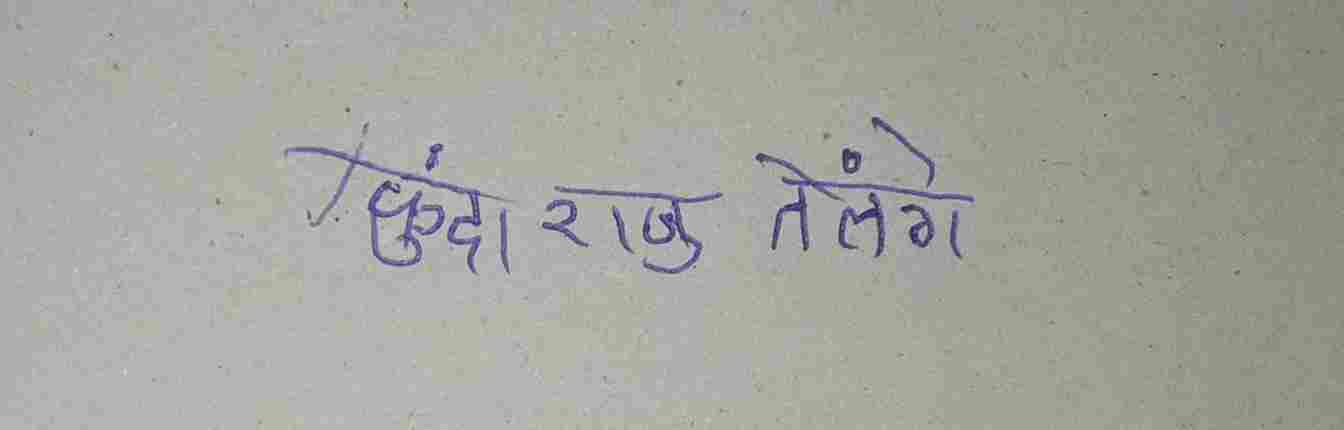 कुंदा राजु तेलंगे